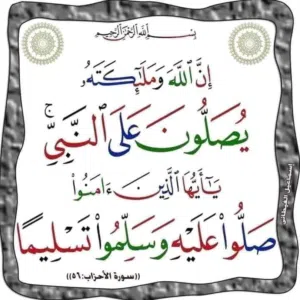 بِسْمِ ٱللَّهِ ٱلرَّحْمَٰنِ ٱلرَّحِيمِ
إِنَّ ٱللَّهَ وَمَلَٰٓئِكَتَهُۥ
يُصَلُّونَ عَلَى ٱلنَّبِىِّ ۚ
يَٰٓأَيُّهَا ٱلَّذِينَ ءَامَنُوا۟
صَلُّوا۟ عَلَيْهِ وَسَلِّمُوا۟ تَسْلِيمًا
((سورة الأحزاب:٥٦))